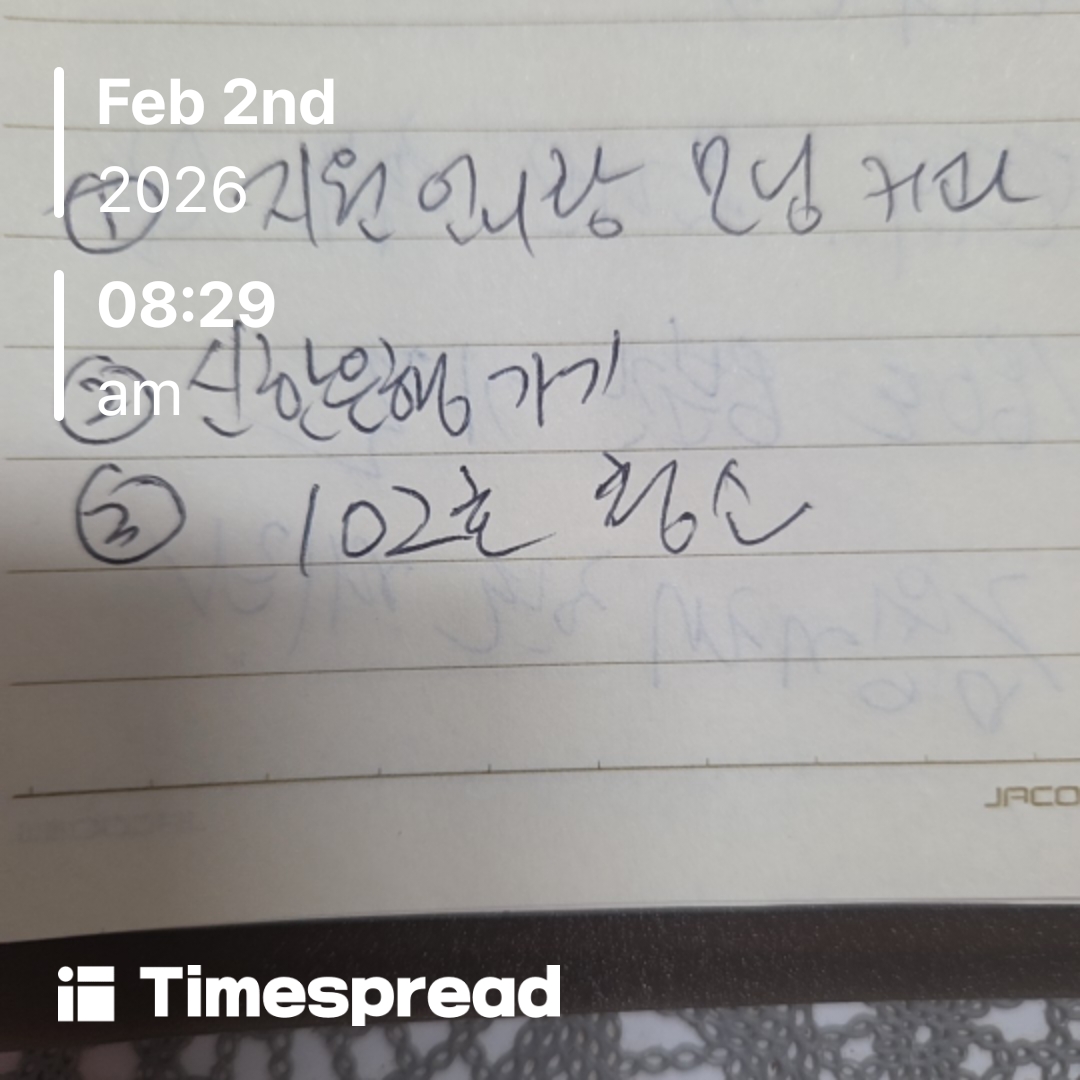 Feb 2nd
2026
① 지원 언니랑 모닝 커피
08:29
am
② 신한은행 가기
③ 102호 청소
JACO
Timespread